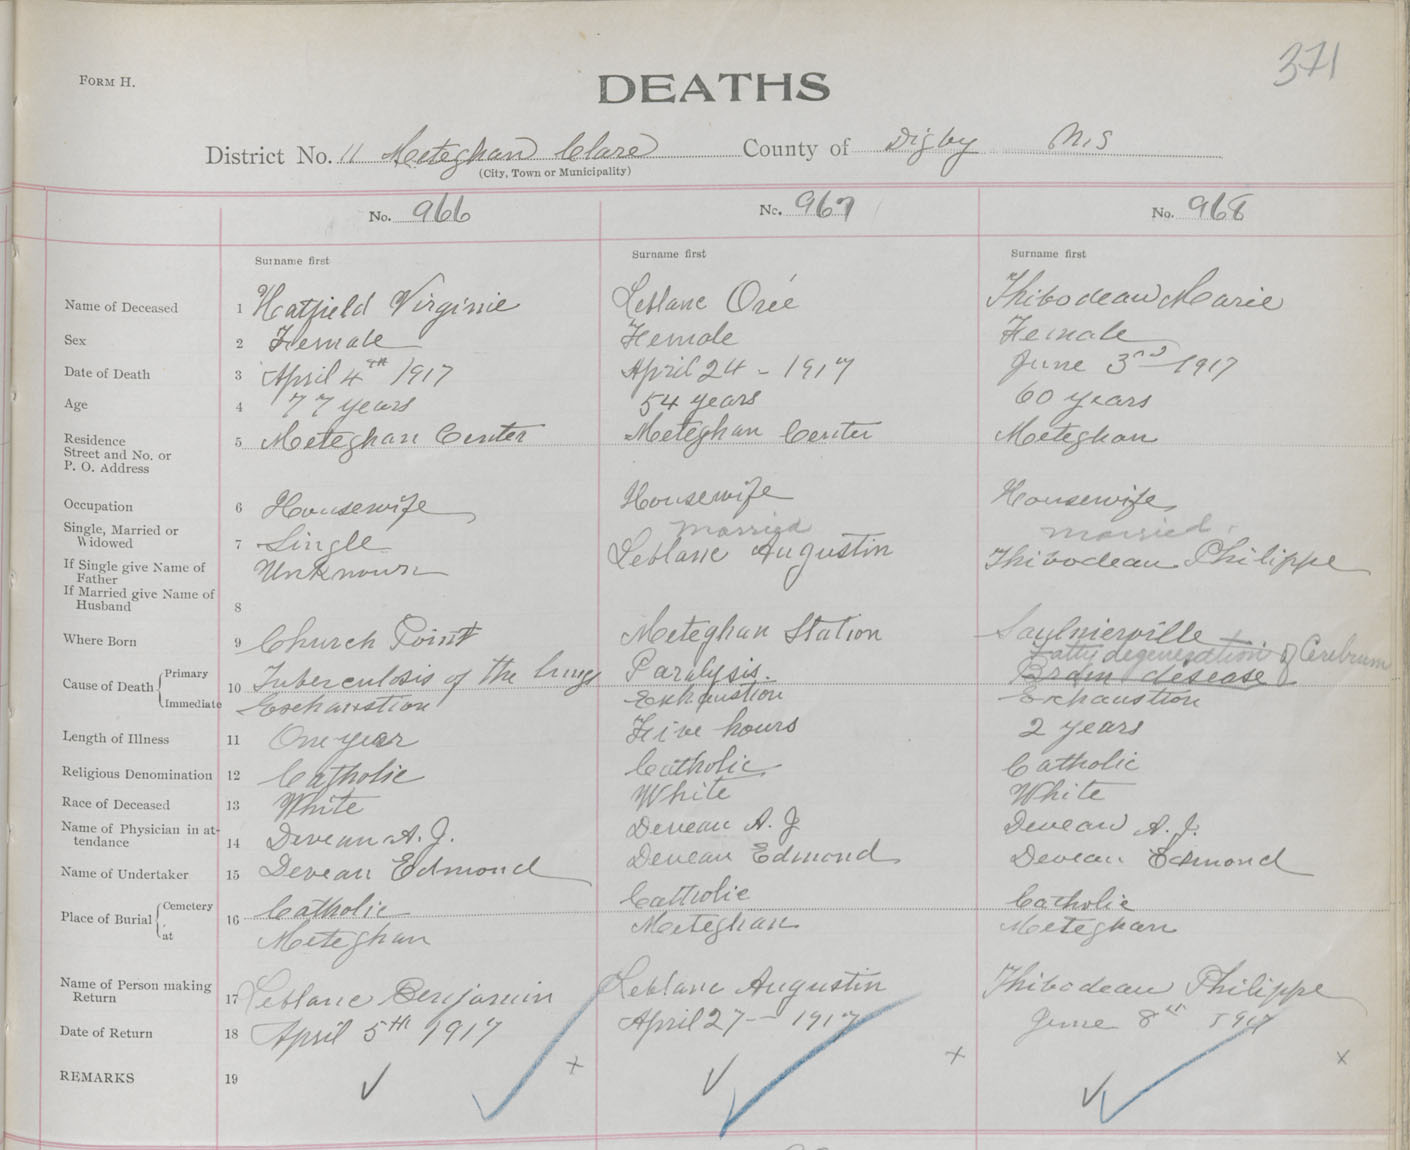 371
FORM H.
DEATHS
District No. 11 Meteghan Clare County of Digby N.S
(City, Town or Municipality)
No. 966 No. 967 No. 968
Surname first Surname first Surname first
Name of Deceased 1 Hatfield Virginie Leblanc Orée Thibodeau Marie
Sex 2 Female Female Female
Date of Death 3 April 4th 1917 April 24 - 1917 June 3rd 1917
Age 4 77 years 54 years 60 years
Residence Street and No. or P. O. Address 5 Meteghan Center Meteghan Center Meteghan
Occupation 6 Housewife Housewife Housewife
married married
Single, Married or Widowed 7 Single Leblanc Augustin Thibodeau Philippe
If Single give Name of Father Unknown
If Married give Name of Husband 8
Where Born 9 Church Point Meteghan Station Saulnierville
Fatty degeneration of Cerebrum
Cause of Death Primary 10 Tuberculosis of the lungs Paralysis. Brain desease
Immediate Exhaustion Exhaustion Exhaustion
Length of Illness 11 One year Five hours 2 years
Religious Denomination 12 Catholic Catholic Catholic
Race of Deceased 13 White White White
Name of Physician in attendance 14 Deveau A. J. Deveau A. J Deveau A. J.
Name of Undertaker 15 Deveau Edmond Deveau Edmond Deveau Edmond
Place of Burial Cemetery 16 Catholic Catholic Catholic
at Meteghan Meteghan Meteghan
Name of Person making Return 17 Leblanc Benjamin Leblanc Augustin Thibodeau Philippe
Date of Return 18 April 5th 1917 April 27 - 1917 June 8th 1917
REMARKS 19